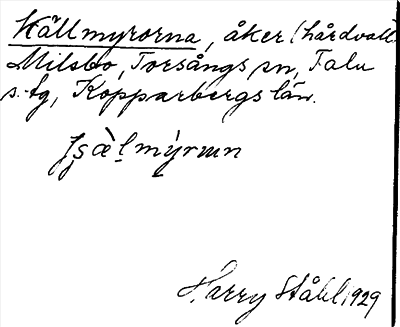 Källmyrorna, åker (hårdvall)
Milsbo, Torsångs sn, Falu
s. tg, Kopparbergs län.
Harry Ståhl 1929